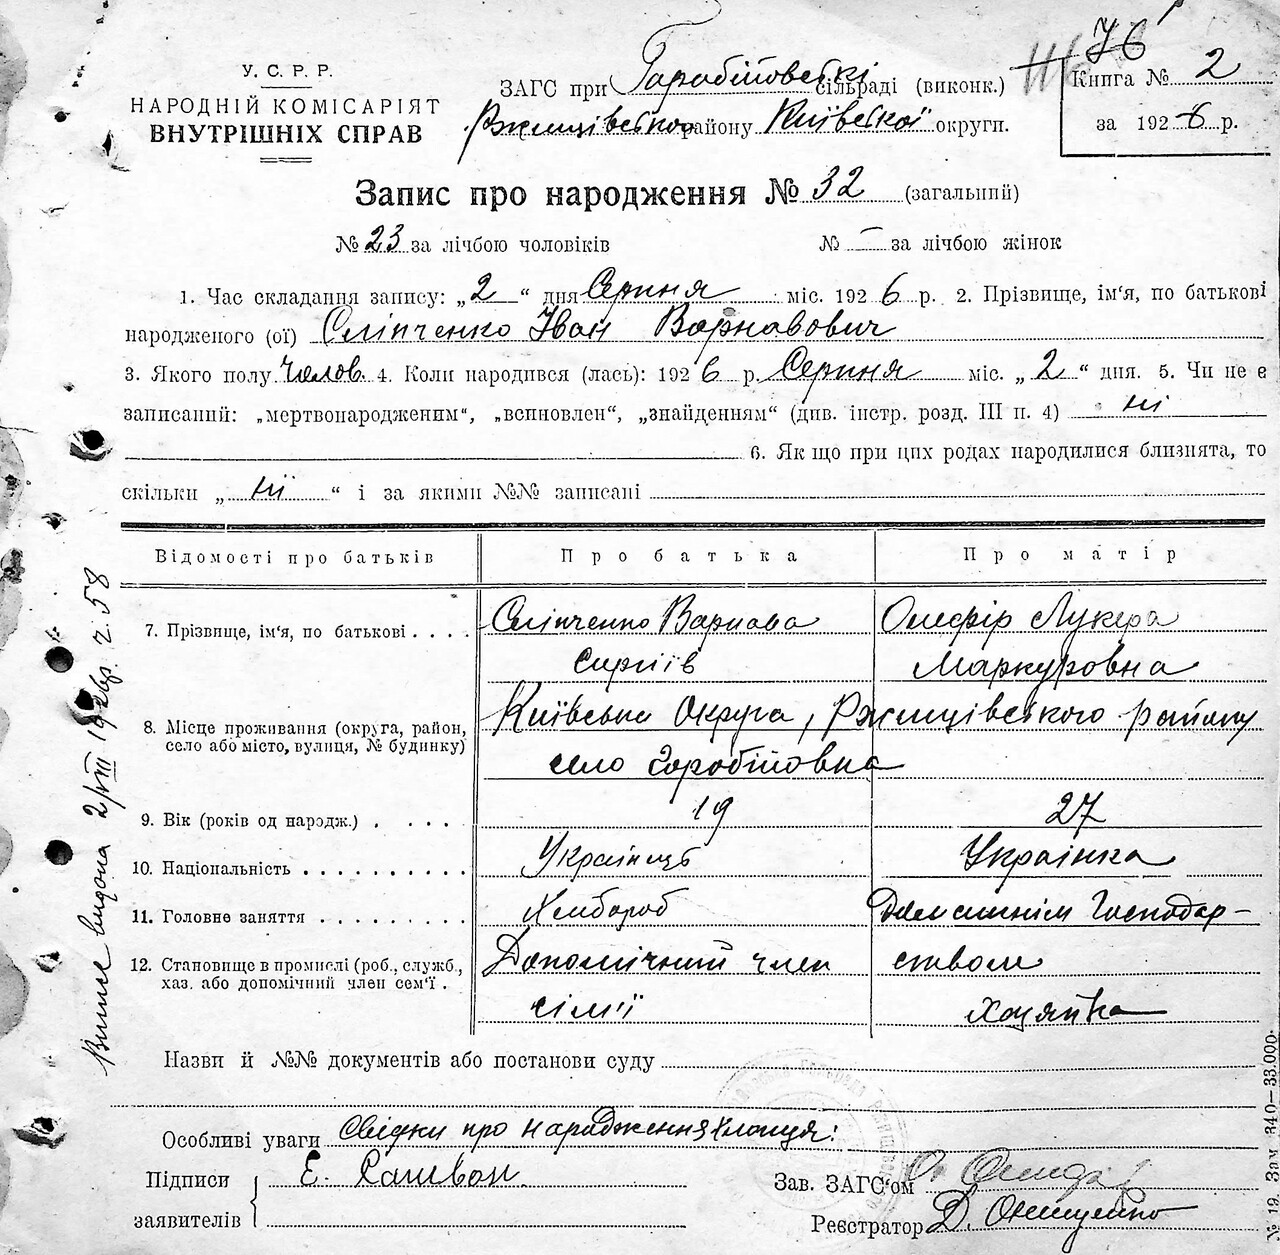 76
У. С. Р. Р.
НАРОДНІЙ КОМІСАРІЯТ
ВНУТРІШНІХ СПРАВ
ЗАГС при Горобіївські сільраді (виконк.)
Ржищівського району Київської округи.
Книга № 2
за 1926 р.
Запис про народження № 32 (загальний)
№ 23 за лічбою чоловіків № – за лічбою жінок
1. Час складання запису: „2“ дня Серпня міс. 1926 р. 2. Прізвище, ім‘я, по батькові
народженого (ої) Сліпченко Іван Варнавович
3. Якого полу Чолов. 4. Коли народився (лась): 1926 р. Серпня міс. „2“ дня. 5. Чи не є
записаний: „мертвонародженим“, „всиновлен“, „знайденням“ (див. інстр. розд. III п. 4) ні
6. Якщо при цих родах народилися близнята, то
скільки „ні“ і за якими №№ записані
Відомості про батьків Про батька Про матір
7. Прізвище, ім‘я, по батькові . . . . Сліпченко Варнава Олефір Лукера
Сиргіїв Маркуровна
8. Місце проживання (округа, район,
село або місто, вулиця, № будинку)
Київська Округа, Ржищівського району
село Горобіївка
9. Вік (років од народж.) . . . . 19 27
10. Національність . . . . . . . . . . Українець Українка
11. Головне заняття . . . . . . . . . Хлібороб Домашнім Господар–
12. Становище в промислі (роб., служб., Допомічний член ством
хаз. або допомічний член сем‘ї . сім'ї Хозяйка
Назви й №№ документів або постанови суду
Особливі уваги Свідки про народження хлопця:
Підписи
заявителів
Е.
Зав. ЗАГС‘ом
Реєстратор Д. Онищенко
Випис видана 2/VIII 1926 р. ч. 58
№ 19. Зам. 340—33.000.